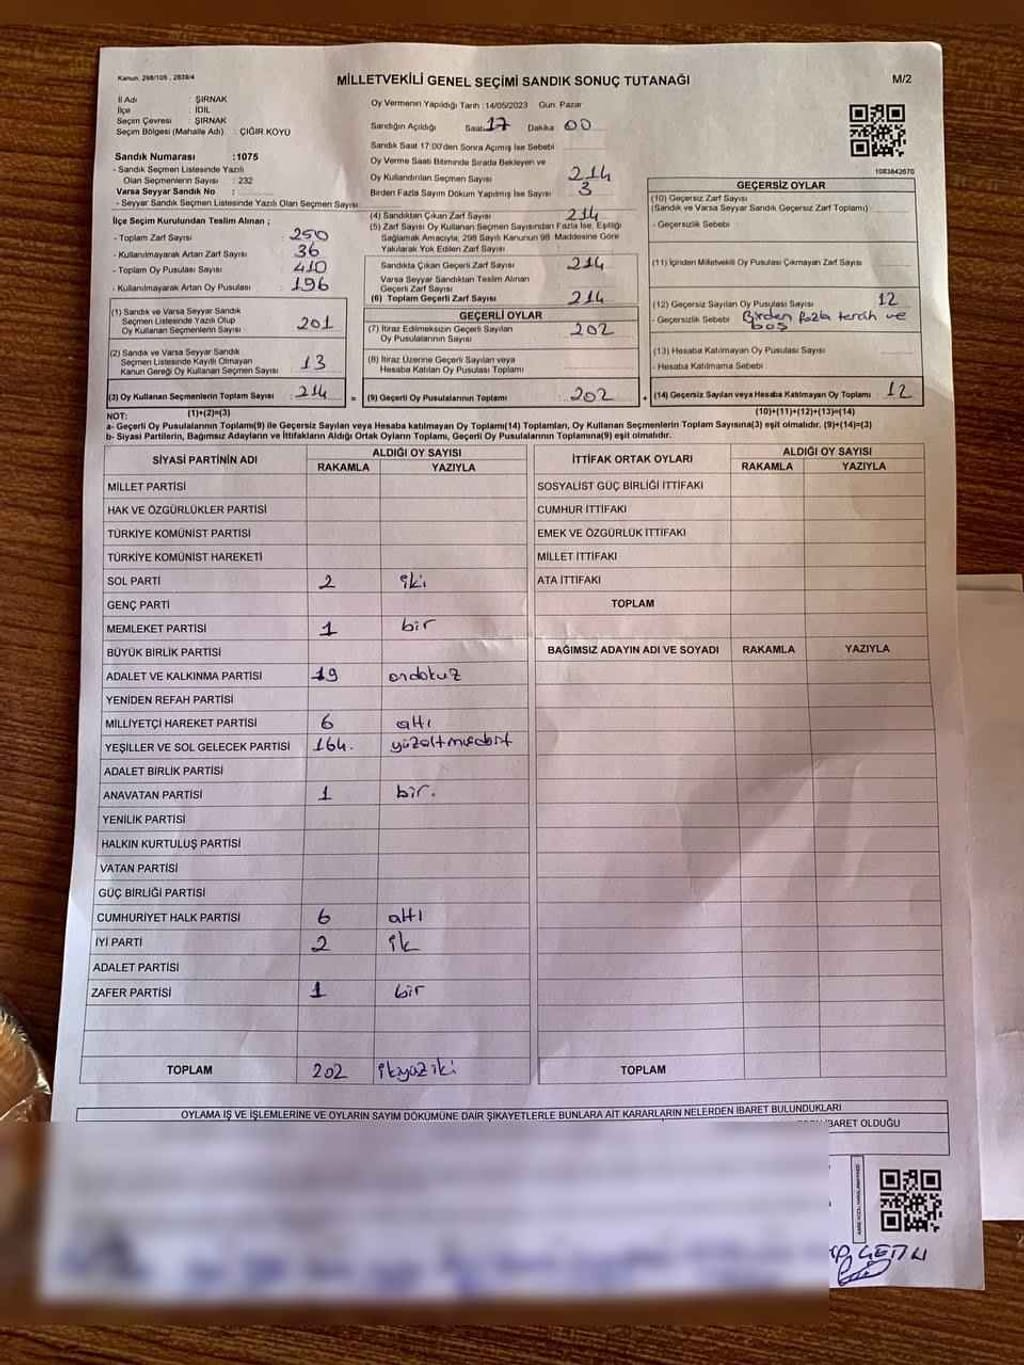 Kanun: 298/105 , 2839/4
MİLLETVEKİLİ GENEL SEÇİMİ SANDIK SONUÇ TUTANAĞI
M/2
İl Adı : ŞIRNAK
İlçe : İDİL
Seçim Çevresi : ŞIRNAK
Seçim Bölgesi (Mahalle Adı) : ÇIĞIR KÖYÜ
Sandık Numarası :1075
- Sandık Seçmen Listesinde Yazılı
Olan Seçmenlerin Sayısı : 232
Varsa Seyyar Sandık No :
- Seyyar Sandık Seçmen Listesinde Yazılı Olan Seçmen Sayısı
İlçe Seçim Kurulundan Teslim Alınan ;
- Toplam Zarf Sayısı : 250
- Kullanılmayarak Artan Zarf Sayısı : 36
- Toplam Oy Pusulası Sayısı : 410
- Kullanılmayarak Artan Oy Pusulası : 196
(1) Sandık ve Varsa Seyyar Sandık
Seçmen Listesinde Yazılı Olup
Oy Kullanan Seçmenlerin Sayısı : 201
(2) Sandık ve Varsa Seyyar Sandık
Seçmen Listesinde Kayıtlı Olmayan
Kanun Gereği Oy Kullanan Seçmen Sayısı : 13
(3) Oy Kullanan Seçmenlerin Toplam Sayısı : 214 =
Oy Vermenin Yapıldığı Tarih :14/05/2023 Gün: Pazar
Sandığın Açıldığı Saat: 17 Dakika 00
Sandık Saat 17:00'den Sonra Açılmış İse Sebebi
Oy Verme Saati Bitiminde Sırada Bekleyen ve
Oy Kullandırılan Seçmen Sayısı : 214
Birden Fazla Sayım Döküm Yapılmış İse Sayısı : 3
(4) Sandıktan Çıkan Zarf Sayısı : 214
(5) Zarf Sayısı Oy Kullanan Seçmen Sayısından Fazla İse, Eşitliği
Sağlamak Amacıyla, 298 Sayılı Kanunun 98. Maddesine Göre
Yakılarak Yok Edilen Zarf Sayısı
Sandıkta Çıkan Geçerli Zarf Sayısı : 214
Varsa Seyyar Sandıktan Teslim Alınan
Geçerli Zarf Sayısı
(6) Toplam Geçerli Zarf Sayısı : 214
GEÇERLİ OYLAR
(7) İtiraz Edilmeksizin Geçerli Sayılan
Oy Pusulalarının Sayısı : 202
(8) İtiraz Üzerine Geçerli Sayılan veya
Hesaba Katılan Oy Pusulası Toplamı
(9) Geçerli Oy Pusulalarının Toplamı : 202 +
1083642670
GEÇERSİZ OYLAR
(10) Geçersiz Zarf Sayısı
(Sandık ve Varsa Seyyar Sandık Geçersiz Zarf Toplamı)
- Geçersizlik Sebebi
(11) İçinden Milletvekili Oy Pusulası Çıkmayan Zarf Sayısı
(12) Geçersiz Sayılan Oy Pusulası Sayısı : 12
- Geçersizlik Sebebi Birden fazla tercih ve
boş
(13) Hesaba Katılmayan Oy Pusulası Sayısı
- Hesaba Katılmama Sebebi
(14) Geçersiz Sayılan veya Hesaba Katılmayan Oy Toplamı : 12
NOT: (1)+(2)=(3)
(10)+(11)+(12)+(13)=(14)
a- Geçerli Oy Pusulalarının Toplamı(9) ile Geçersiz Sayılan veya Hesaba katılmayan Oy Toplamı(14) Toplamları, Oy Kullanan Seçmenlerin Toplam Sayısına(3) eşit olmalıdır. (9)+(14)=(3)
b- Siyasi Partilerin, Bağımsız Adayların ve İttifakların Aldığı Ortak Oyların Toplamı, Geçerli Oy Pusulalarının Toplamına(9) eşit olmalıdır.
SİYASİ PARTİNİN ADI
ALDIĞI OY SAYISI
RAKAMLA YAZIYLA
MİLLET PARTİSİ
HAK VE ÖZGÜRLÜKLER PARTİSİ
TÜRKİYE KOMÜNİST PARTİSİ
TÜRKİYE KOMÜNİST HAREKETİ
SOL PARTİ 2 iki
GENÇ PARTİ
MEMLEKET PARTİSİ 1 bir
BÜYÜK BİRLİK PARTİSİ
ADALET VE KALKINMA PARTİSİ 19 ondokuz
YENİDEN REFAH PARTİSİ
MİLLİYETÇİ HAREKET PARTİSİ 6 altı
YEŞİLLER VE SOL GELECEK PARTİSİ 164. yüzaltmışdört
ADALET BİRLİK PARTİSİ
ANAVATAN PARTİSİ 1 bir.
YENİLİK PARTİSİ
HALKIN KURTULUŞ PARTİSİ
VATAN PARTİSİ
GÜÇ BİRLİĞİ PARTİSİ
CUMHURİYET HALK PARTİSİ 6 altı
İYİ PARTİ 2 ik
ADALET PARTİSİ
ZAFER PARTİSİ 1 bir
TOPLAM 202 ikyüziki
İTTİFAK ORTAK OYLARI
ALDIĞI OY SAYISI
RAKAMLA YAZIYLA
SOSYALİST GÜÇ BİRLİĞİ İTTİFAKI
CUMHUR İTTİFAKI
EMEK VE ÖZGÜRLÜK İTTİFAKI
MİLLET İTTİFAKI
ATA İTTİFAKI
TOPLAM
BAĞIMSIZ ADAYIN ADI VE SOYADI RAKAMLA YAZIYLA
TOPLAM
OYLAMA İŞ VE İŞLEMLERİNE VE OYLARIN SAYIM DÖKÜMÜNE DAİR ŞİKAYETLERLE BUNLARA AİT KARARLARIN NELERDEN İBARET BULUNDUKLARI
İBARET OLDUĞU